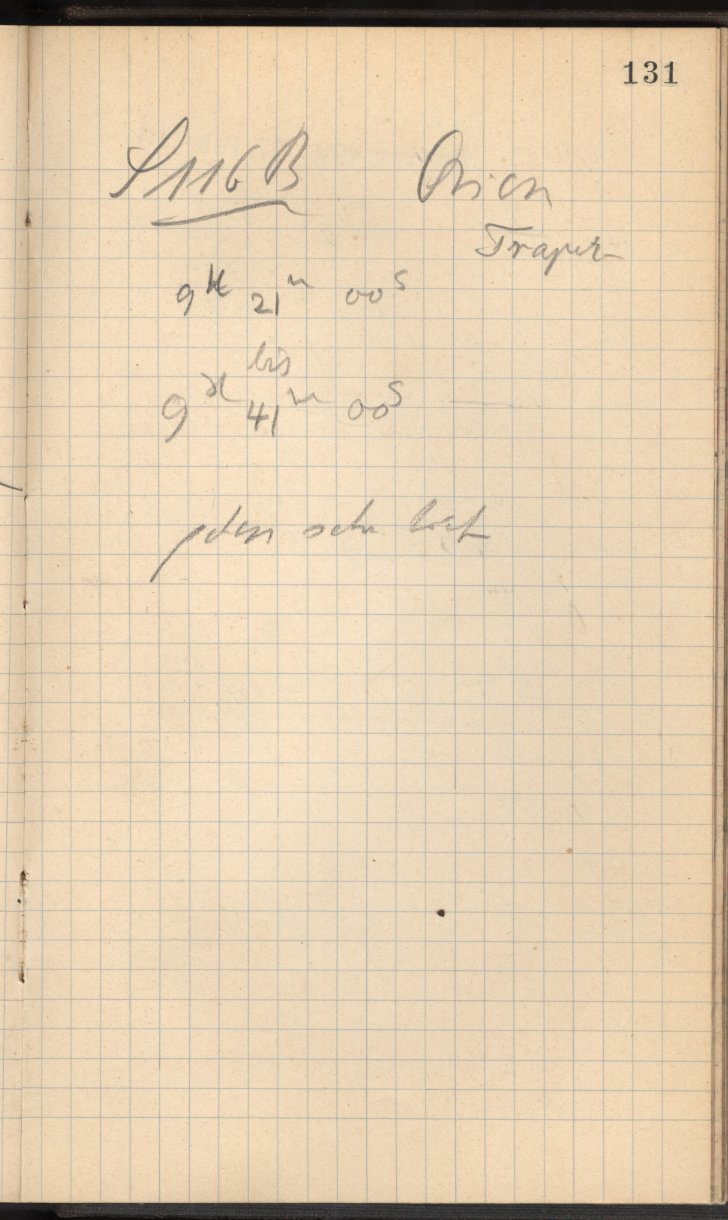 131
S116B Orion
Trapez
9h 21m 00s
bis
9h 41m 00s
sehr